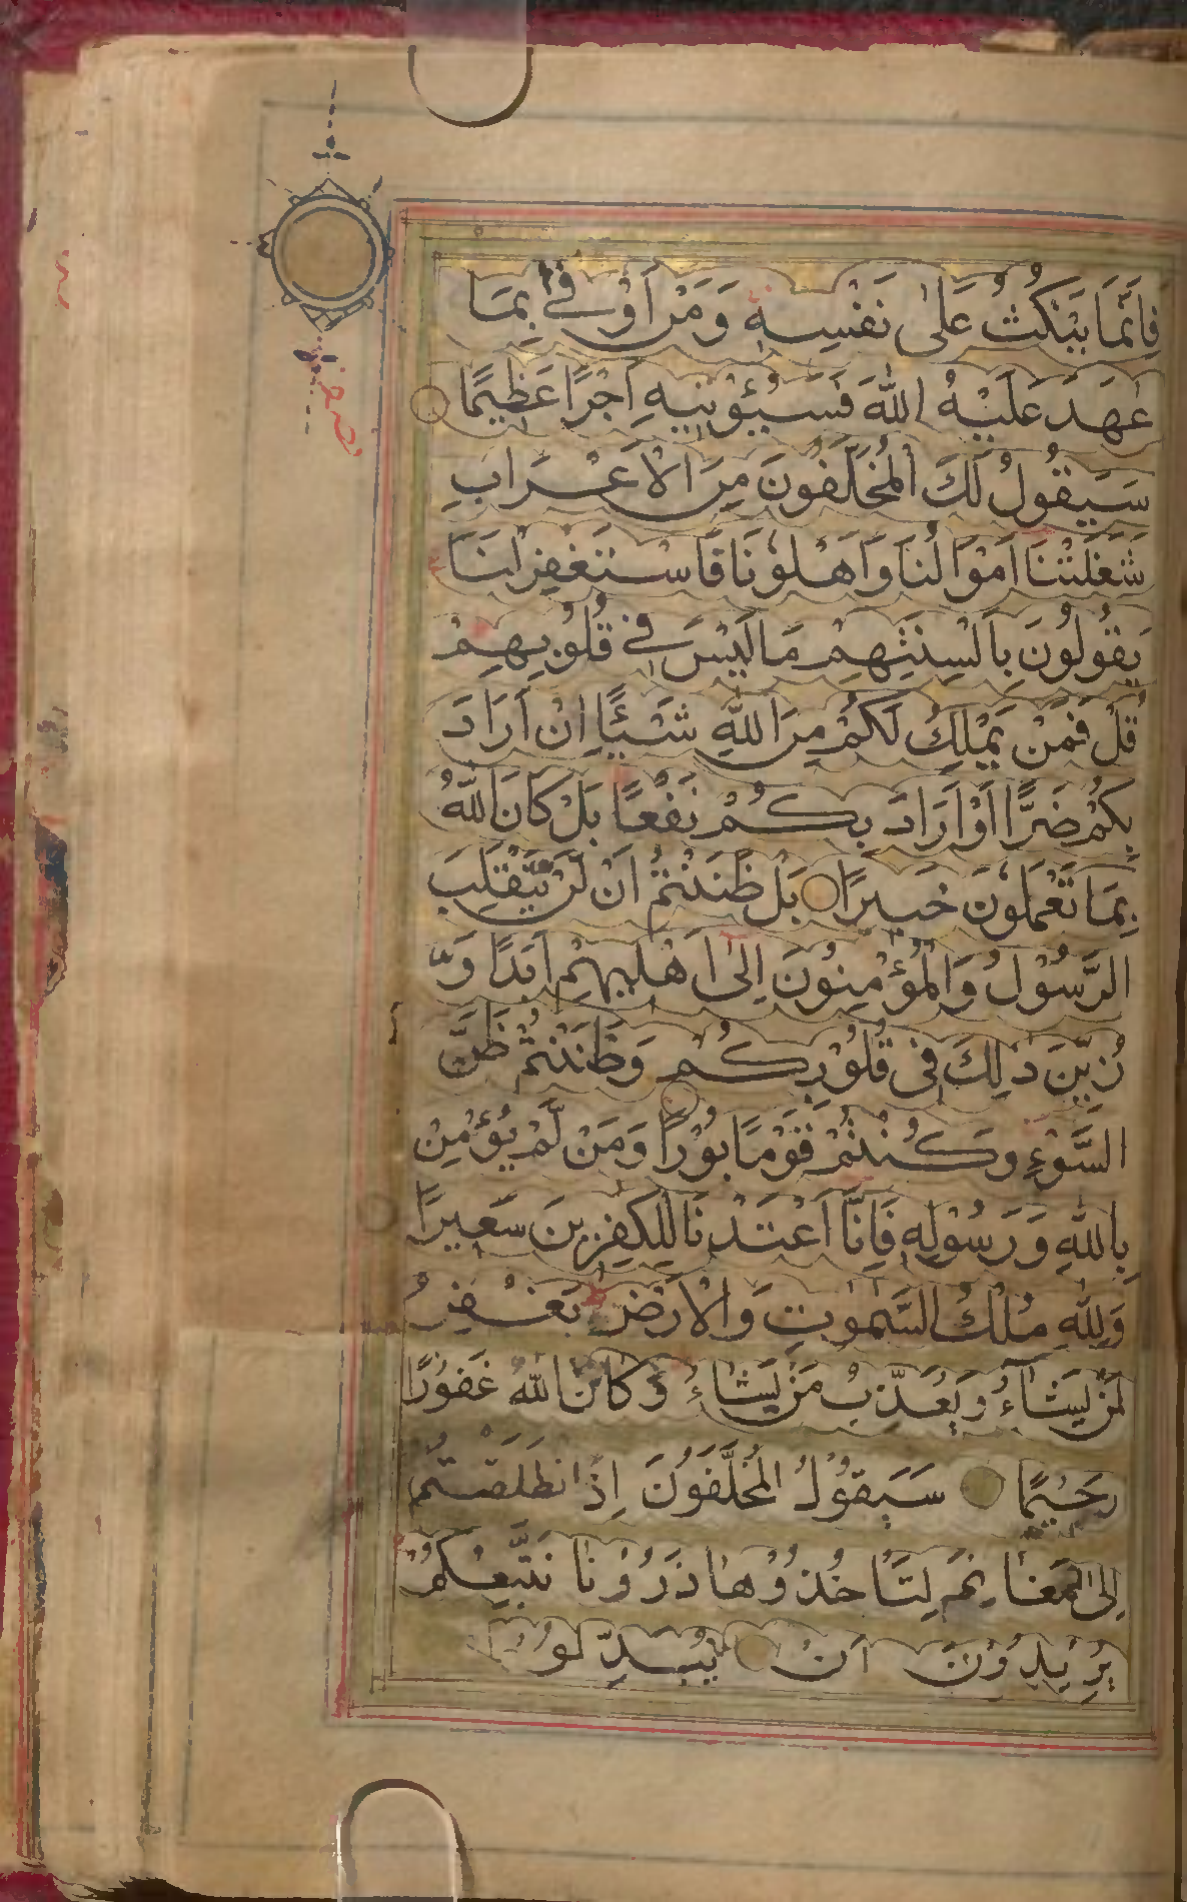 فَاِنَّمَا يَنْكُثُ عَلٰى نَفْسِهٖ وَمَنْ اَوْفٰى بِمَا
عٰهَدَ عَلَيْهُ اللّٰهَ فَسَيُؤْتِيهِ اَجْرًا عَظِيْمًا
سَيَقُولُ لَكَ الْمُخَلَّفُونَ مِنَ الْاَعْرَابِ
شَغَلَتْنَا اَمْوَالُنَا وَاَهْلُونَا فَاسْتَغْفِرْ لَنَا
يَقُولُونَ بِاَلْسِنَتِهِمْ مَا لَيْسَ فِي قُلُوبِهِمْ
قُلْ فَمَنْ يَمْلِكُ لَكُمْ مِنَ اللّٰهِ شَيْئًا اِنْ اَرَادَ
بِكُمْ ضَرًّا اَوْ اَرَادَ بِكُمْ نَفْعًا بَلْ كَانَ اللّٰهُ
بِمَا تَعْمَلُونَ خَبِيرًا بَلْ ظَنَنْتُمْ اَنْ لَنْ يَّنْقَلِبَ
الرَّسُوْلُ وَالْمُؤْمِنُونَ اِلٰى اَهْلِيهِمْ اَبَدًا وَّ
زُيِّنَ ذٰلِكَ فِى قُلُوْبِكُمْ وَظَنَنْتُمْ ظَنَّ
السَّوْءِ وَكُنْتُمْ قَوْمًا بُوْرًا وَمَنْ لَّمْ يُؤْمِنْ
بِاللّٰهِ وَرَسُوْلِهٖ فَاِنَّا اَعْتَدْنَا لِلْكٰفِرِينَ سَعِيرًا
وَلِلّٰهِ مُلْكُ السَّمٰوٰتِ وَالْاَرْضِ يَغْفِرُ
لِمَنْ يَشَآءُ وَيُعَذِّبُ مَنْ يَشَاءُ وَكَانَ اللّٰهُ غَفُوْرًا
رَحِيْمًا سَيَقُوْلُ الْمُخَلَّفُوْنَ اِذَا انْطَلَقْتُمْ
اِلٰى مَغَانِمَ لِتَاْخُذُوْهَا ذَرُوْنَا نَتَّبِعْكُمْ
يُرِيْدُوْنَ اَنْ يُبَدِّلُوْا